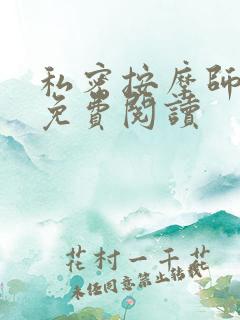 私密按摩師
免費閱讀
花村一千花
未经同意禁止转载